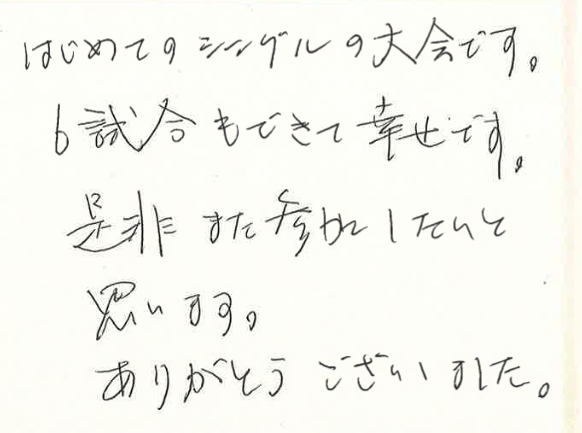 はじめてのシングルの大会です。
6試合もできて幸せです。
是非また参加したいと
思います。
ありがとうございました。